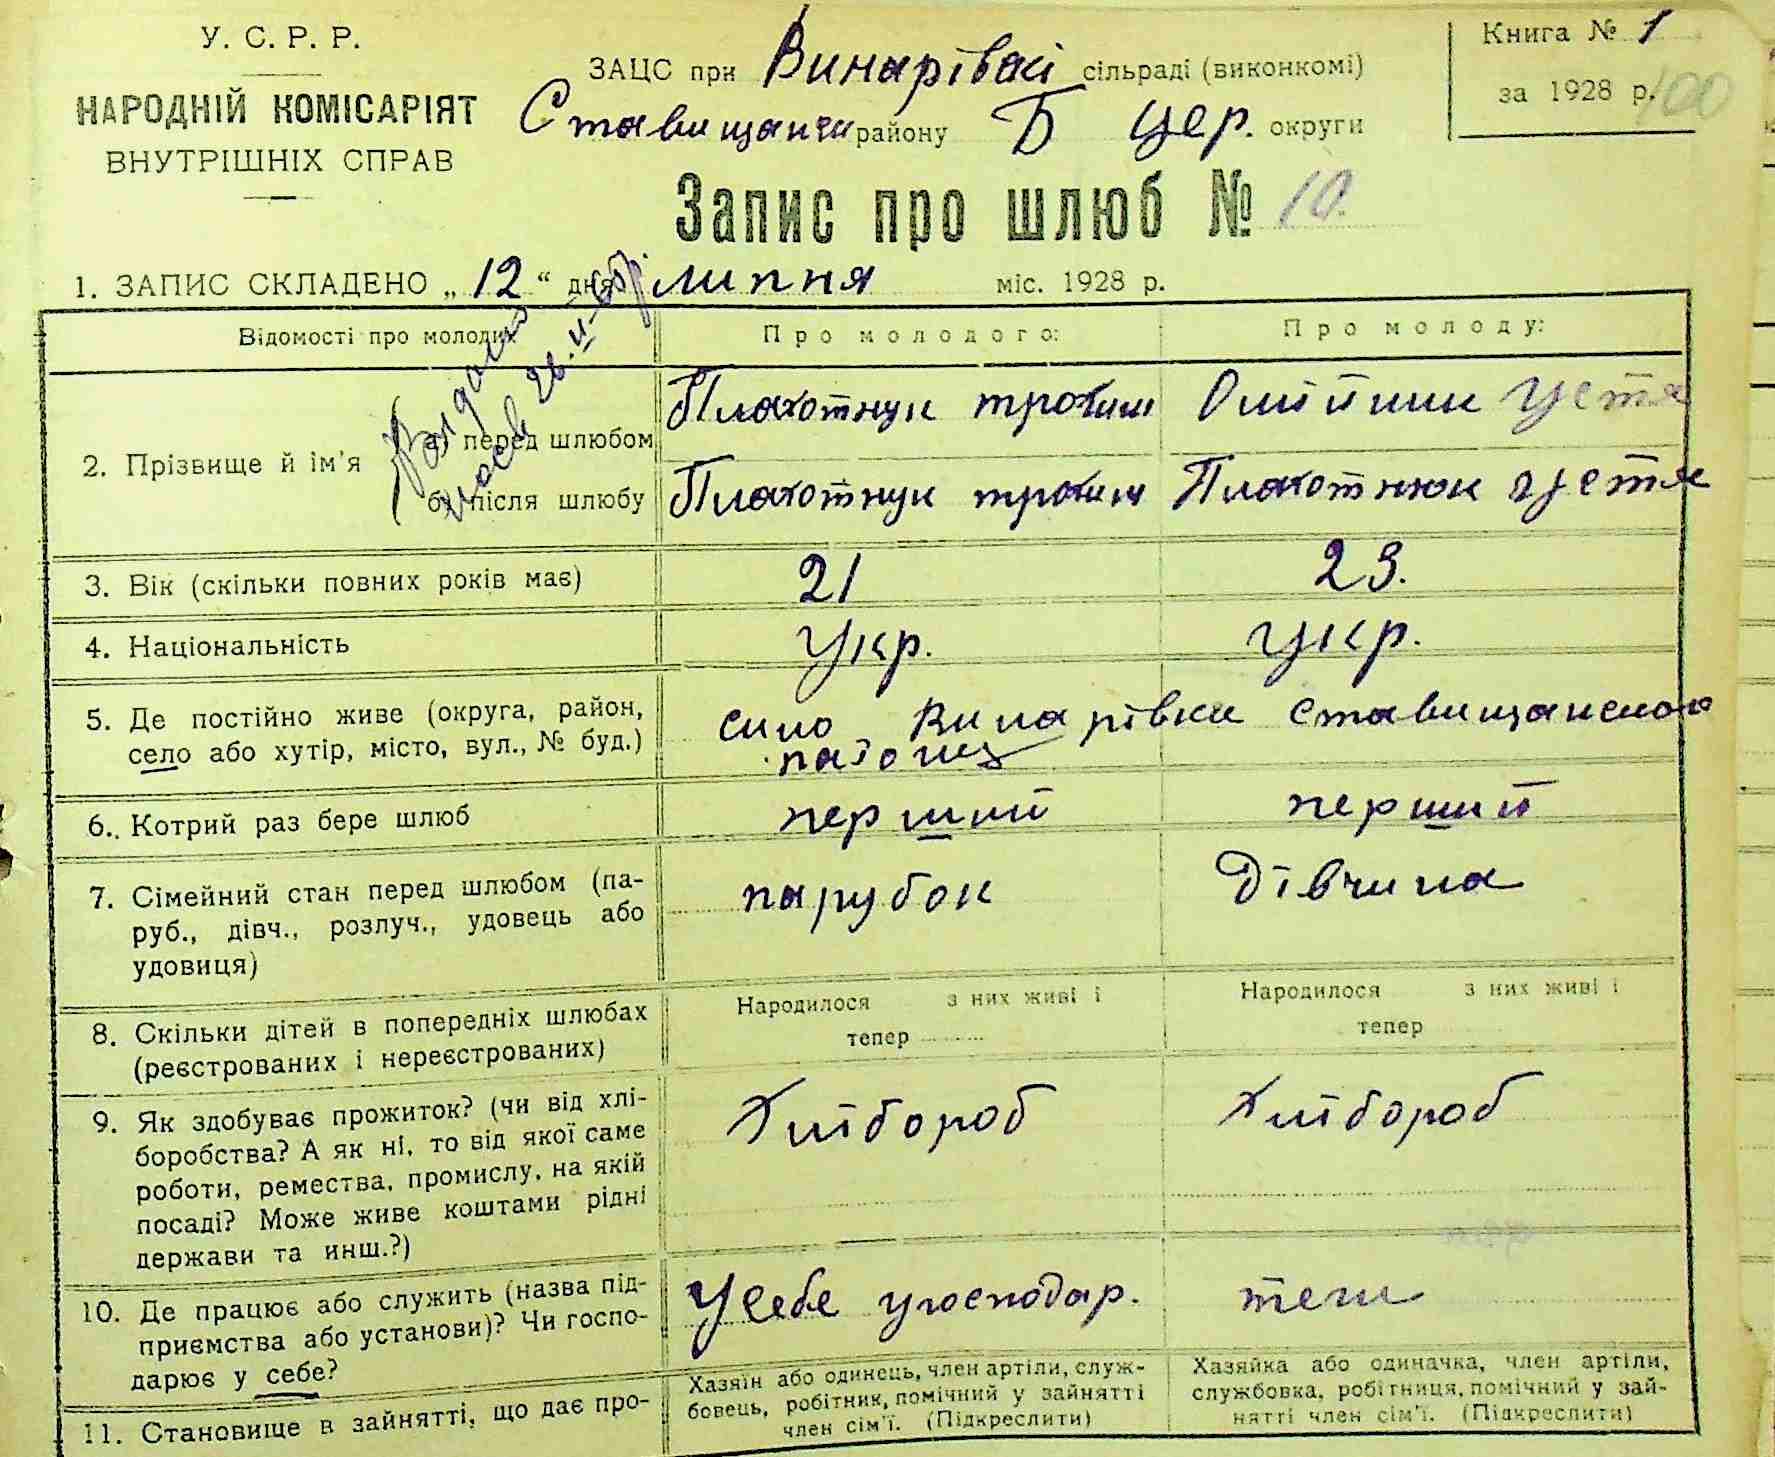 У. С. Р. Р.
НАРОДНІЙ КОМІСАРІЯТ
ВНУТРІШНІХ СПРАВ
ЗАЦС при Винарівскі сільраді (виконкомі)
Ставищанськ району Б Цер. округи
Книга № 1
за 1928 р. 100
Запис про шлюб № 10.
1. ЗАПИС СКЛАДЕНО „ 12 “ дня липня міс. 1928 р.
Відомості про молодих Про молодого: Про молоду:
2. Прізвище й ім'я
а) перед шлюбом Плахотнук трохим Олійник Устя
б) після шлюбу Плахотнук трохим Плахотнюк Устя
3. Вік (скільки повних років має) 21 23.
4. Національність Укр. Укр.
5. Де постійно живе (округа, район, село або хутір, місто, вул., № буд.) село Винарівки ставищанского району
6. Котрий раз бере шлюб перший перший
7. Сімейний стан перед шлюбом (па-
руб., дівч., розлуч., удовець або
удовиця) парубок Дівчина
8. Скільки дітей в попередніх шлюбах
(реєстрованих і нереєстрованих)
Народилося з них живі і
тепер
Народилося з них живі і
тепер
9. Як здобуває прожиток? (чи від хлі-
боробства? А як ні, то від якої саме
роботи, ремества, промислу, на якій
посаді? Може живе коштами рідні
держави та инш.?)
Хлібороб Хлібороб
10. Де працює або служить (назва під-
приємства або установи)? Чи госпо-
дарює у себе?
У себе угосподар. теш
11. Становище в зайнятті, що дає про-
Хазяїн або одинець, член артіли, служ-
бовець, робітник, помічний у зайнятті
член сім'ї. (Підкреслити)
Хазяйка або одиначка, член артіли,
службовка, робітниця, помічний у зай-
нятті член сім'ї. (Підкреслити)